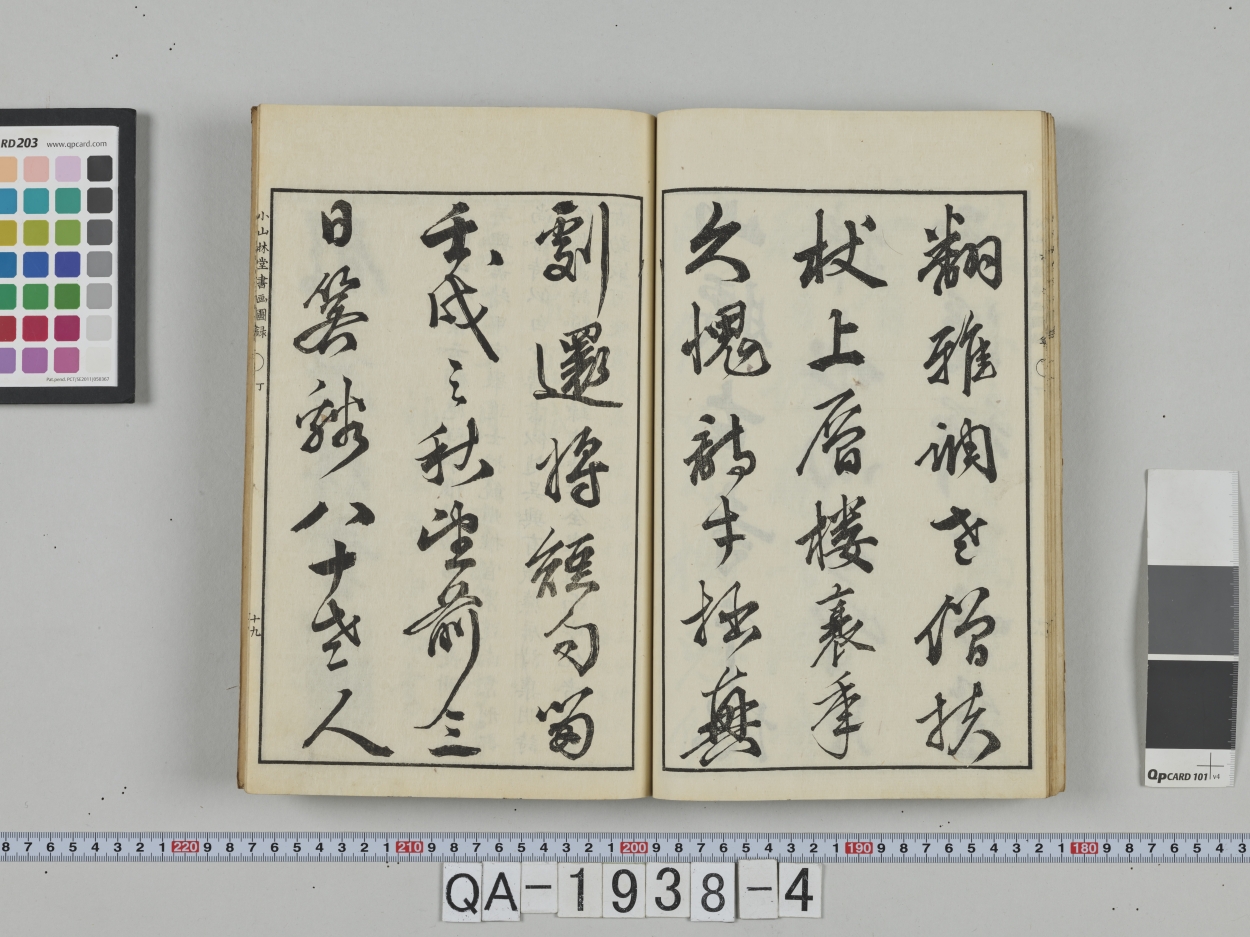 翻雅調老僧扶
杖上層楼衰年
久愧詩才拙
劇還将短句留
壬戌之秋望前三
日箬谿八十老人
小山林堂書画圖録 丁
十九
RD203 www.qpcard.com
QPCARD 101 v4
8 7 6 5 4 3 2 1 220 9 8 7 6 5 4 3 2 1 210 9 8 7 6 5 4 3 2 1 200 9 8 7 6 5 4 3 2 1 190 9 8 7 6 5 4 3 2 1 180 9 8 7 6 5 4 3
QA-1938-4